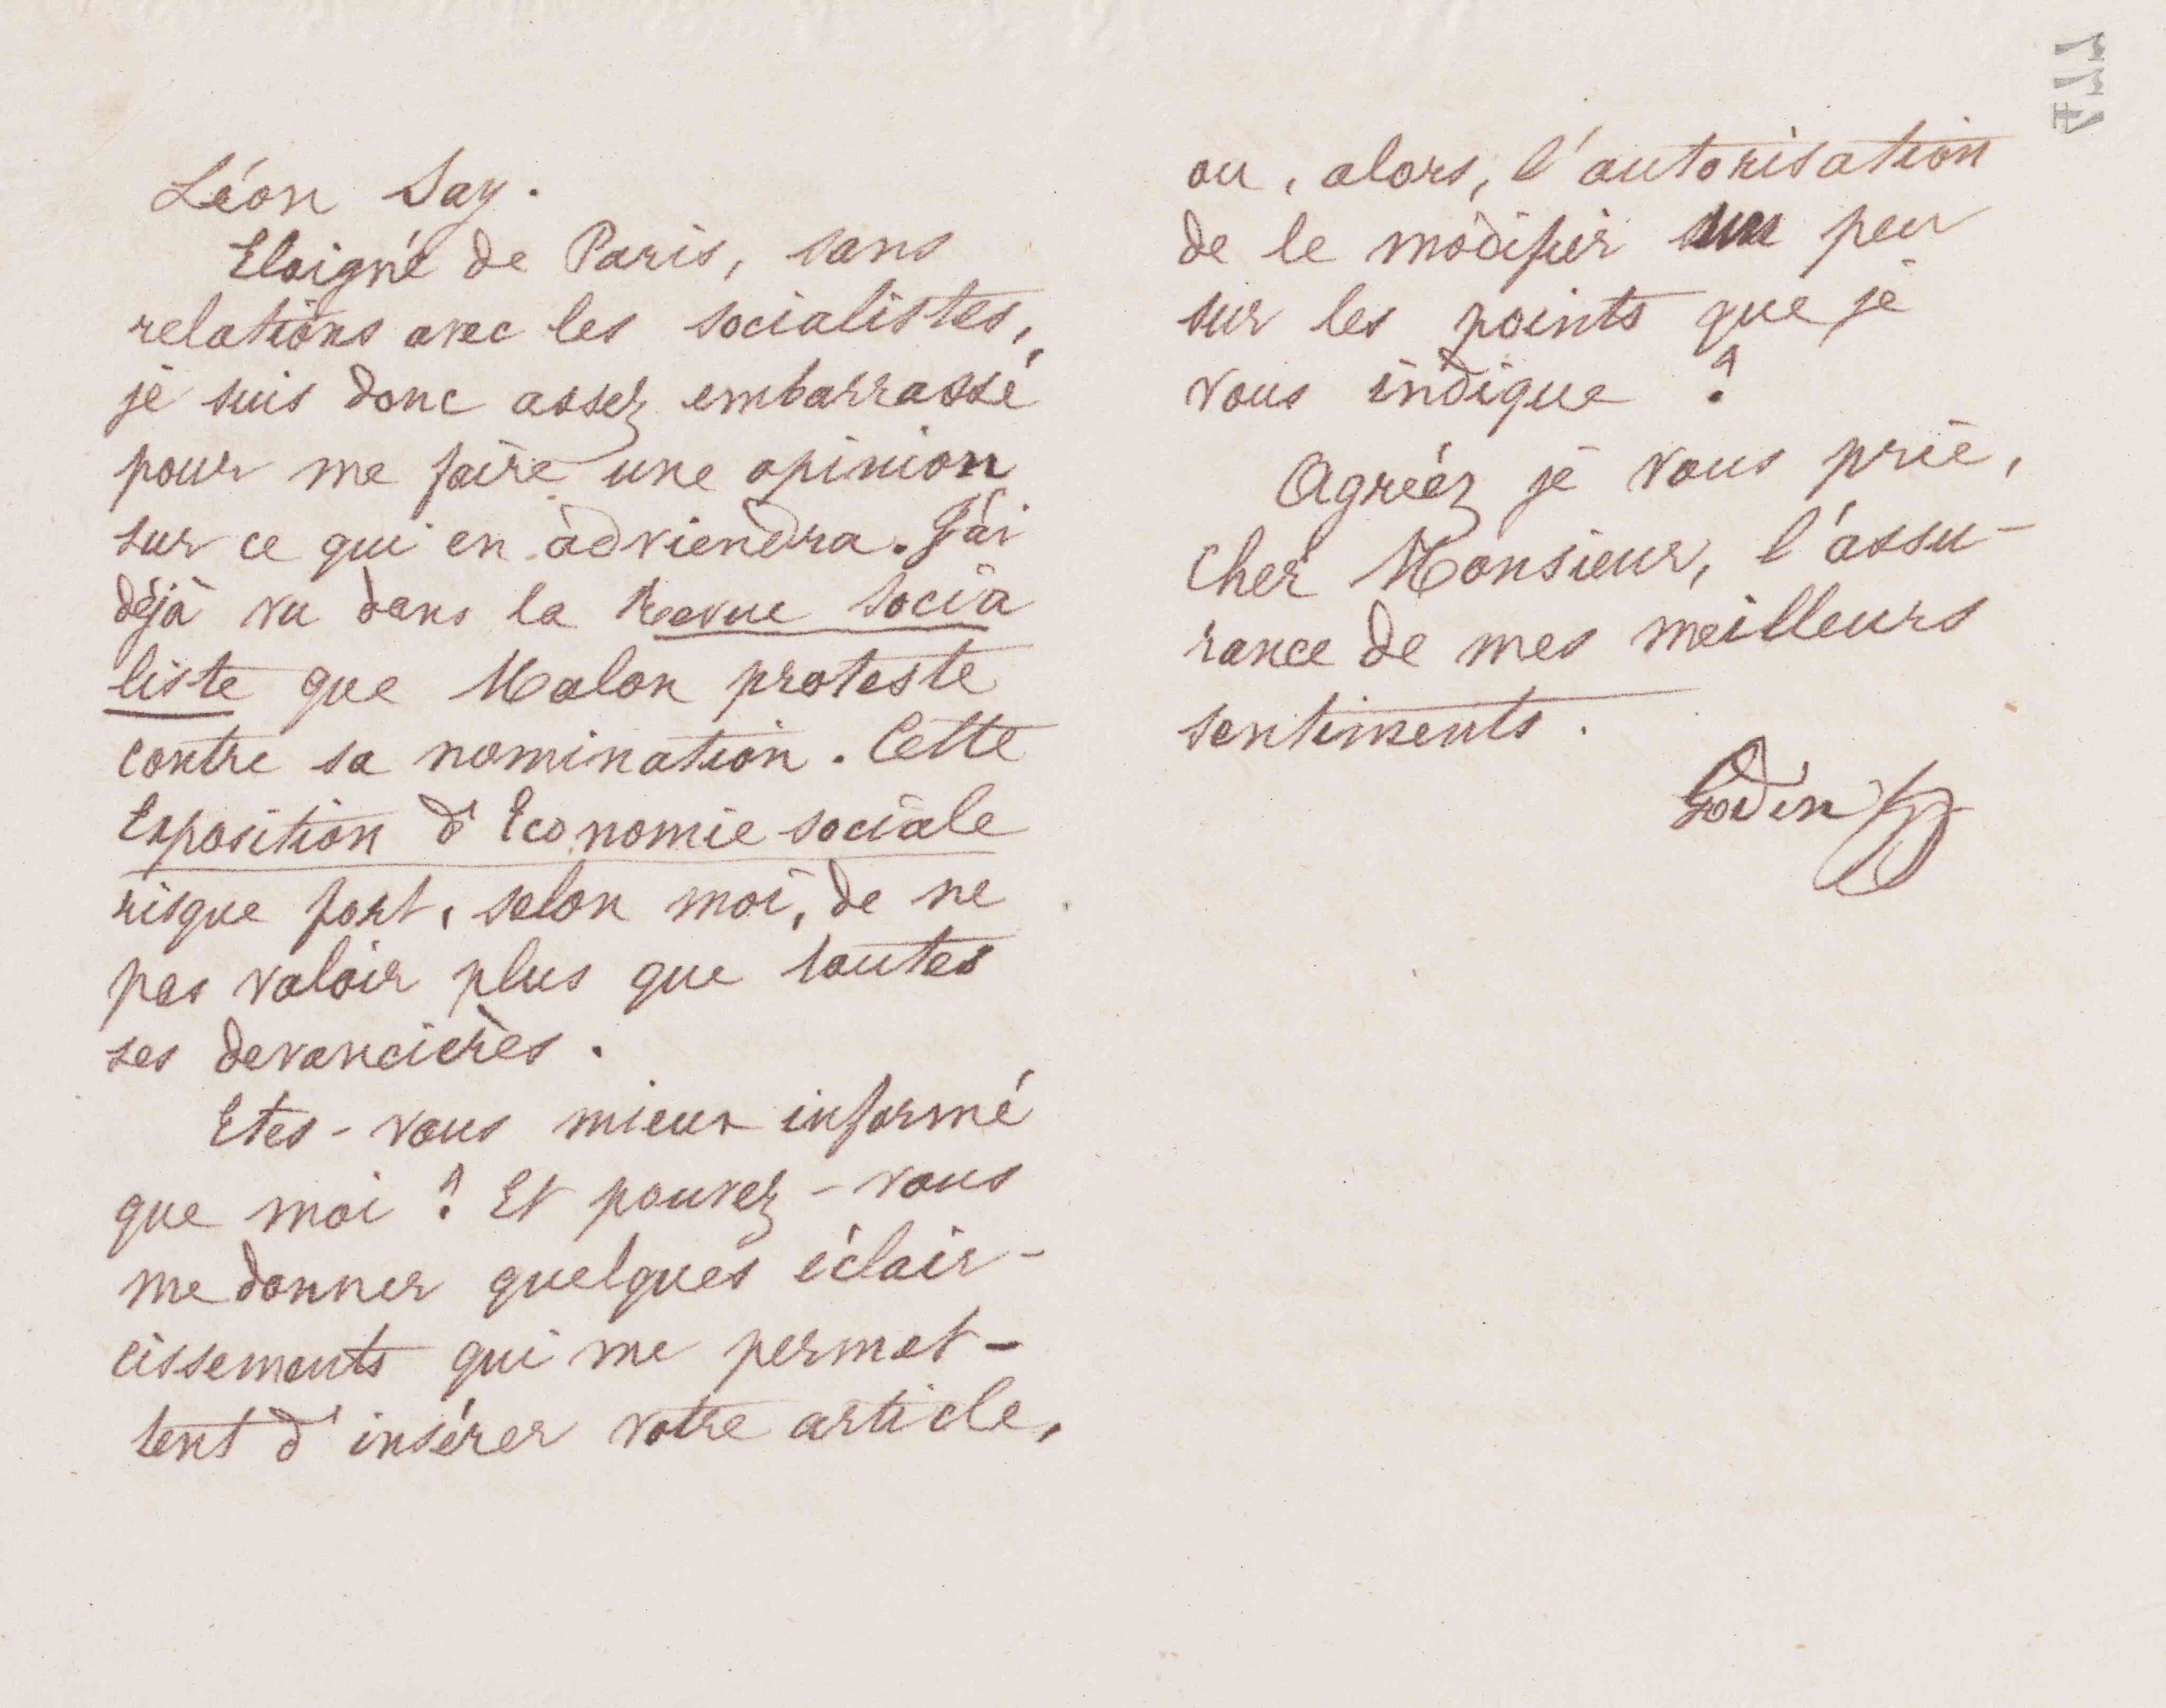 Léon Say.
Eloigné de Paris, sans
relations avec les socialistes,
je suis donc assez embarrassé
pour me faire une opinion
sur ce qui en adviendra. J'ai
déjà vu dans la Revue Socia
liste que Malon proteste
contre sa nomination. Cette
Exposition d'Economie sociale
risque fort, selon moi, de ne
pas valoir plus que toutes
ses devancières.
Etes-vous mieux informé
que moi ? Et pouvez-vous
me donner quelques éclair-
cissements qui me permet-
tent d'insérer votre article,
ou, alors, l'autorisation
de le modifier un peu
sur les points que je
vous indique ?
Agréez je vous prie,
cher Monsieur, l'assu-
rance de mes meilleurs
sentiments.
Godin